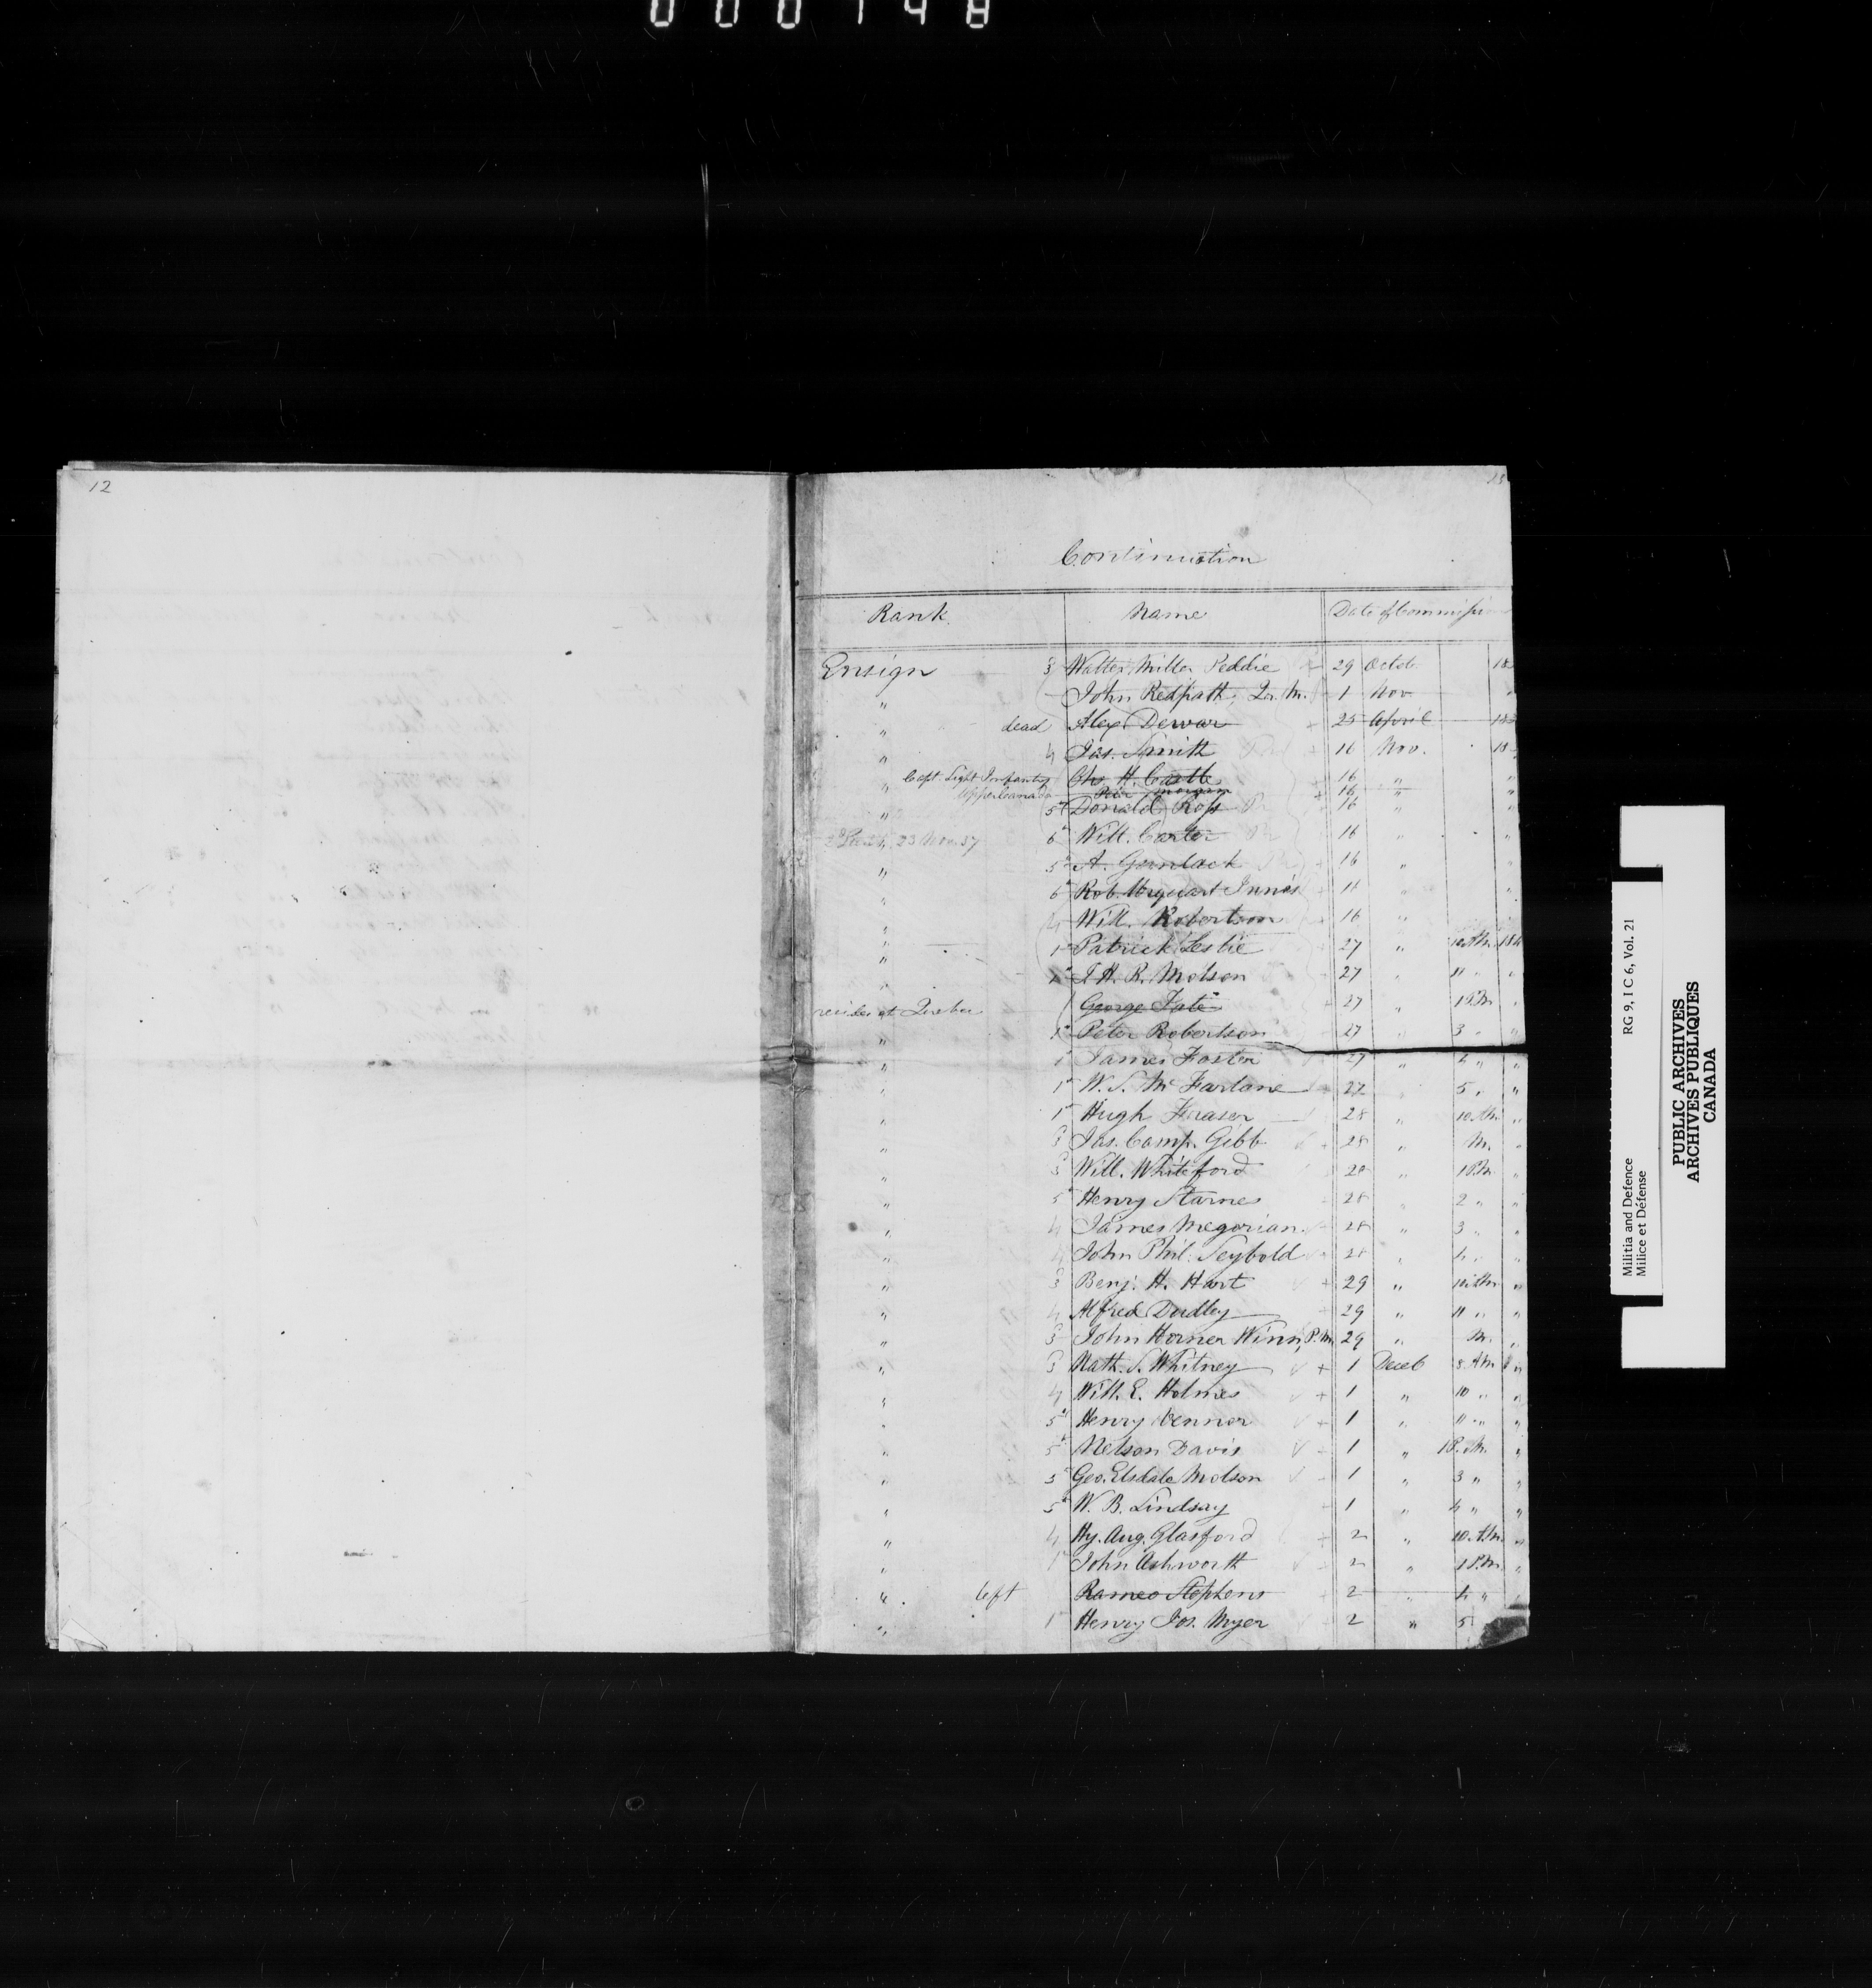 000748
12
13
Continuation
Rank. Name Date of Commission
Ensign 3 Walter Miller Peddie 29 Octob. 18
" John Redpath, Qr. M. 1 Nov "
" dead Alex Dewar 25 April 183
" 4 Jas. Smith 16 Nov. 18
" Capt Light Infantry Chs. H. Castle 16 " "
Upper Canada Peter Morgan 16 " "
" 5 Donald Ross 16 "
23 Nov. 37 6 Will. Carter 16 " "
" 5 A. Gerrlack 16 "
" 6 Rob. Urquart Innes 16 "
" 4 Will. Robertson 16 "
" 1 Patrick Leslie 27 " 10 A.M. 18
" 1 J. H. R. Molson 27 " 11 "
resides at Quebec George Tate 27 " 1 P.M.
" 1 Peter Robertson 27 " 3 " "
" 1 James Foster 27 " 4 " "
" 1 W. S. McFarlane 27 5 " "
" 1 Hugh Fraser 28 " 10 A.M. "
" 3 Jas. Camp. Gibb 28 " M. "
" 3 Will. Whiteford 28 " 1 P.M. "
" 5 Henry Starnes 28 " 2 " "
" 4 James Megorian 28 " 3 " "
" 4 John Phil. Seybold 28 " 4 " "
" 3 Benj. H. Hart + 29 " 10 A.M. "
" 4 Alfred Dudley 29 " 11 " "
" 3 John Horner Winn, P.M. 29 " M. "
" 3 Nath. S. Whitney + 1 Deceb 8 A.M. "
" 4 Will. E. Holmes + 1 " 10 " "
" 5 Henry Vennor + 1 " 11 " "
" 5 Nelson Davis 1 " 1 P.M. "
" 5 Geo. Elsdale Molson 1 " 3 " "
" 5 W. B. Lindsay 1 " 4 " "
" 4 Hy. Aug. Glasford 2 " 10 A.M. "
" 1 John Ashworth 2 " 1 P.M. "
" left Romeo Stephens 2 " 4 "
" 1 Henry Jos. Myer 2 " 5
Militia and Defence
Milice et Défense
RG 9, I C 6, Vol. 21
PUBLIC ARCHIVES
ARCHIVES PUBLIQUES
CANADA